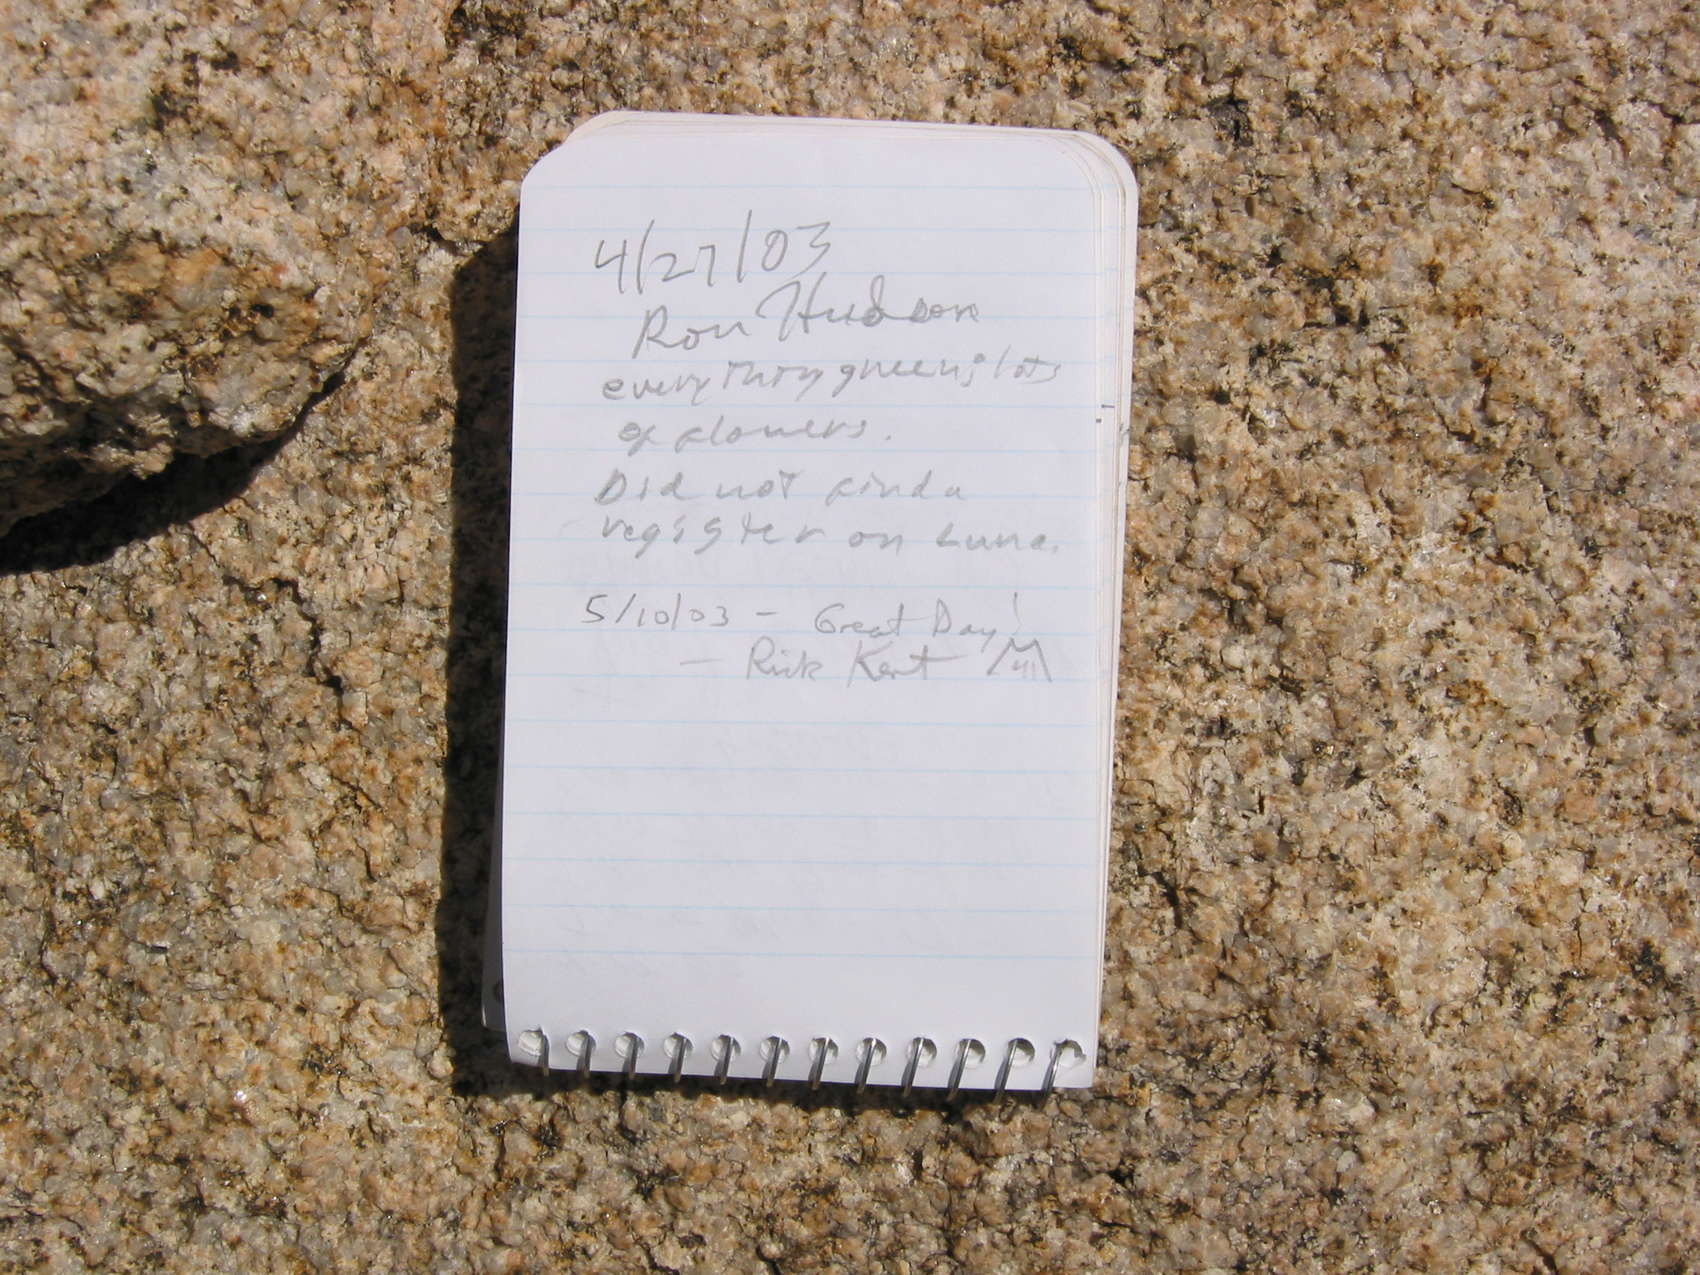 4/27/03
Ron Hudson
everything green, lots
of flowers.
Did not find a
register on Luna.
5/10/03 - Great Day!
- Rick Kent